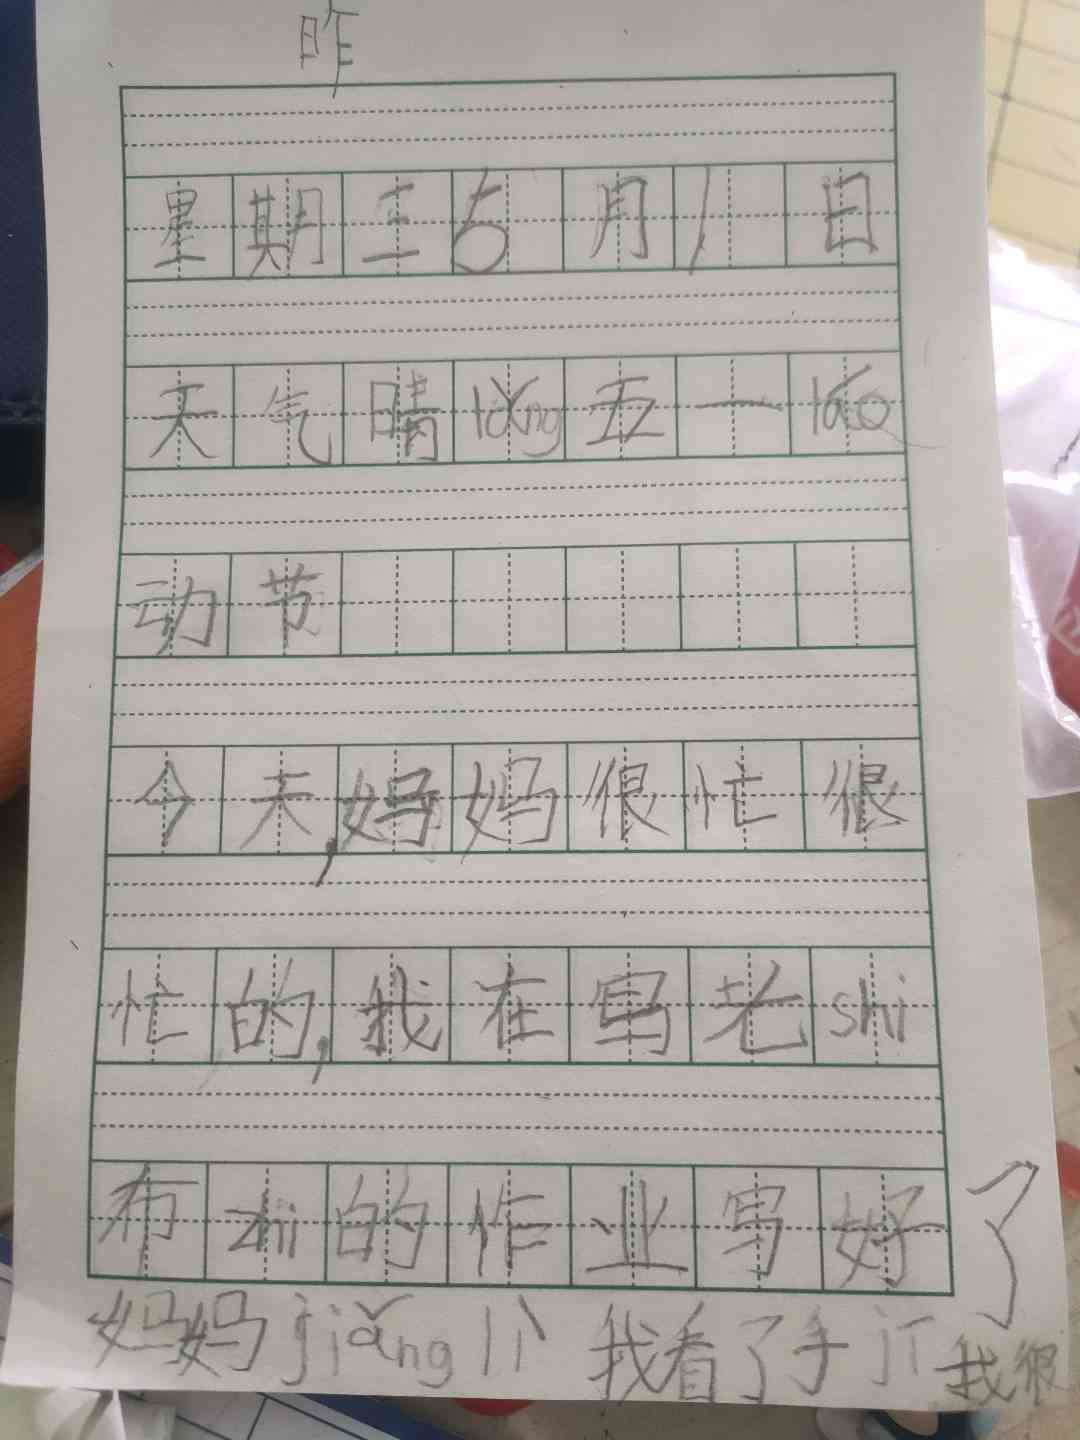 昨
星期三5月1日
天气晴lǎng五一láo
动节
今天,妈妈很忙很
忙的,我在写老shi
布zhi的作业写好了
妈妈jiǎng lì 我看了手jī我很